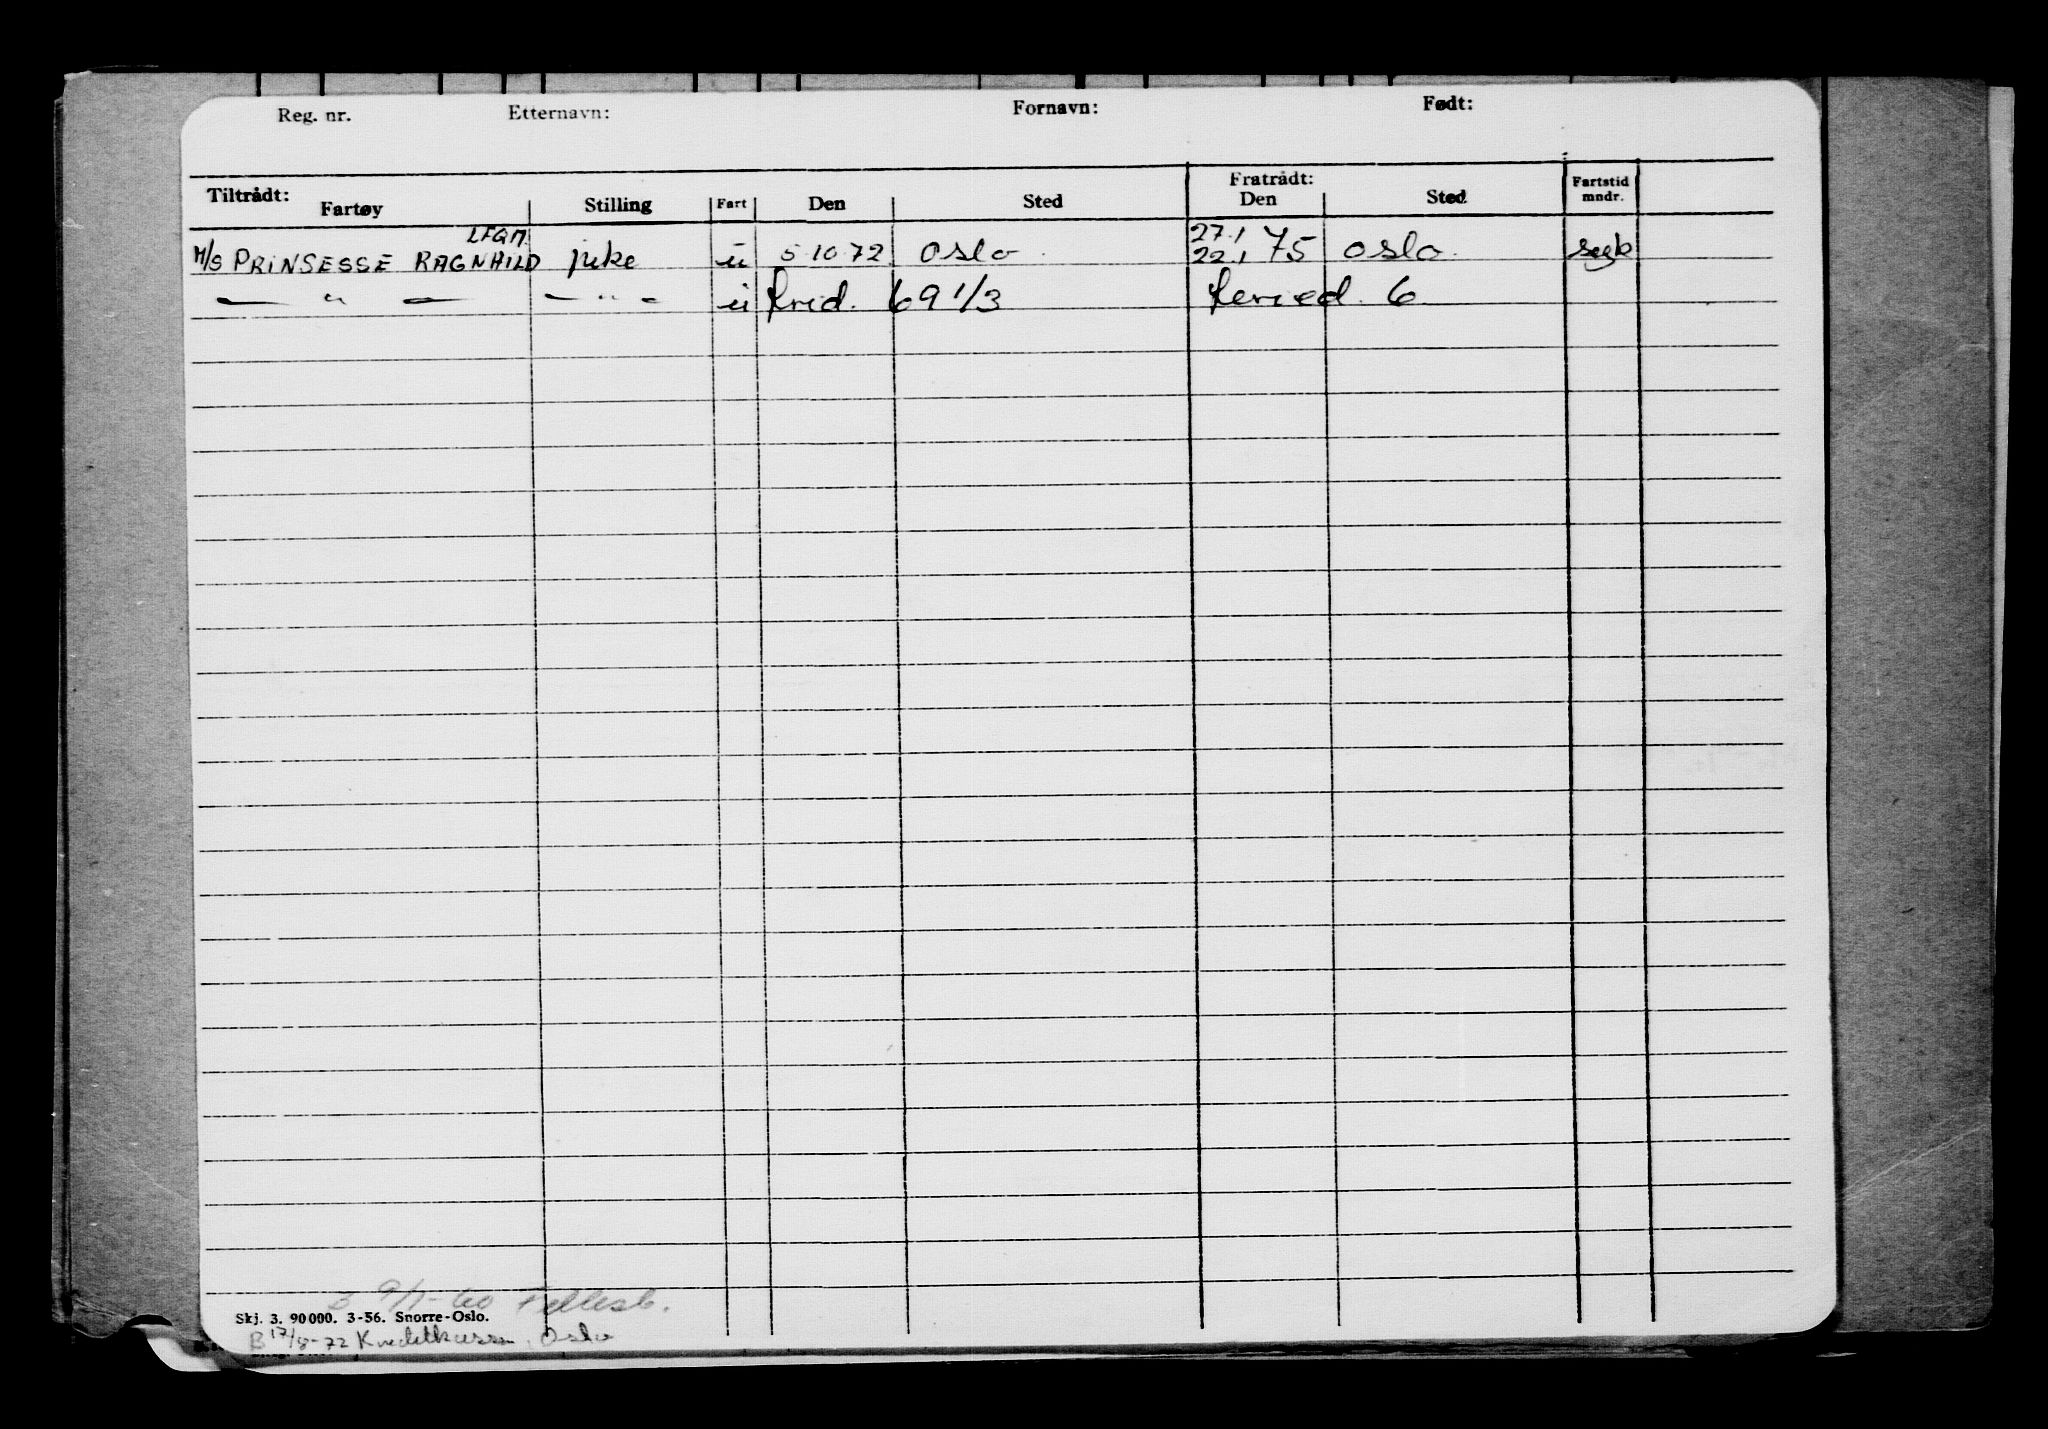 Reg. nr. Etternavn: Fornavn: Født:
Tiltrådt: Fratrådt: Fartstid
Fartøy Stilling Fart Den Sted Den Sted mndr.
LFQM 27.1
M/S PRINSESSE RAGNHILD juke u 5 10 72 Oslo 22.1 75 Oslo
— " — — " — u 69 1/3 6
9/1-60 Fellesb.
Skj. 3. 90000. 3-56. Snorre-Oslo.
B 17/8-72 Kreditkassen, Oslo